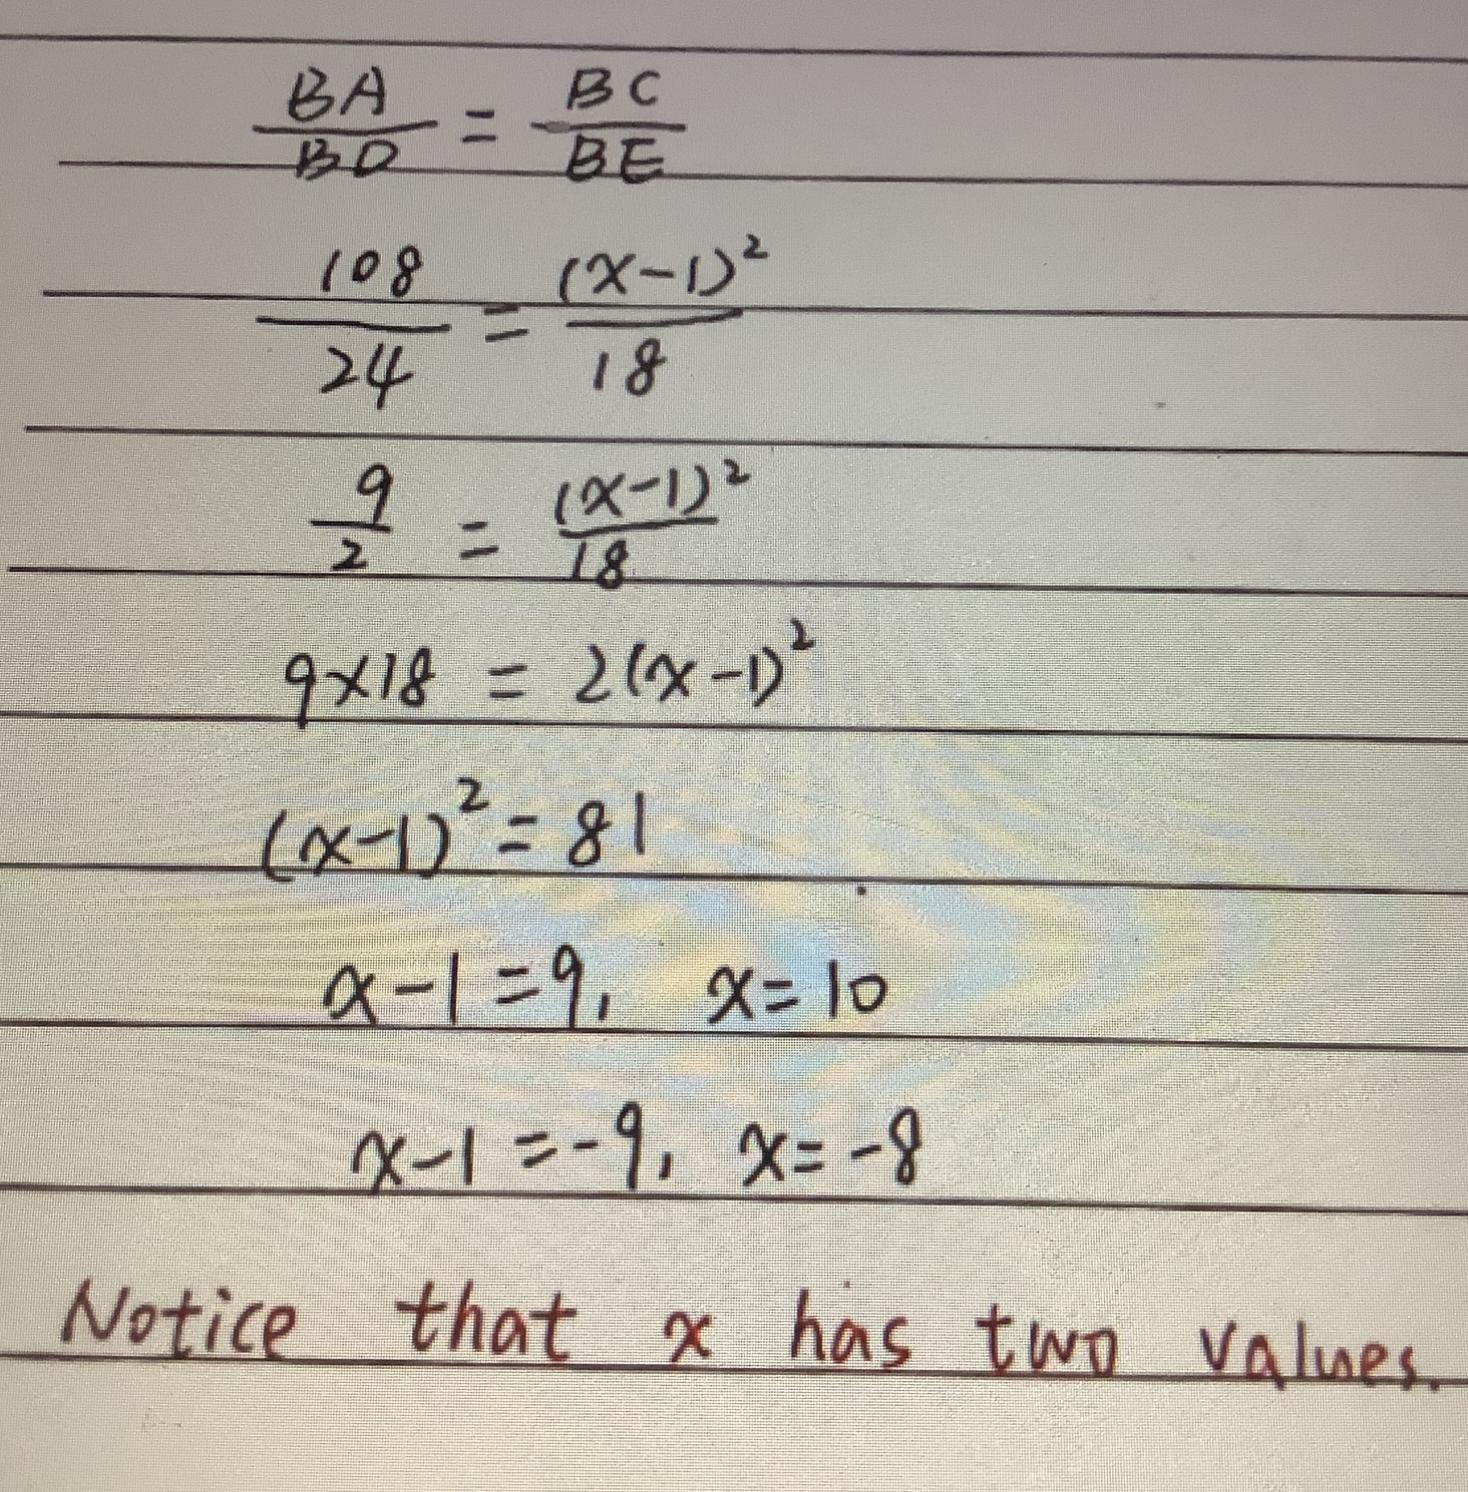 BA/BD = BC/BE
108/24 = (x-1)²/18
9/2 = (x-1)²/18
9×18 = 2(x-1)²
(x-1)² = 81
x-1=9, x=10
x-1=-9, x=-8
Notice that x has two values.